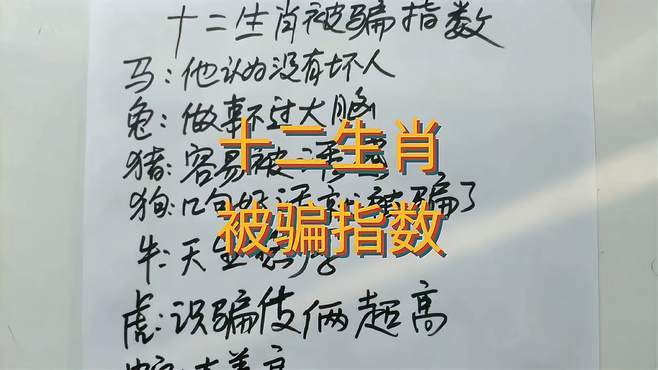 十二生肖被骗指数
马:他认为没有坏人
兔:做事不过大脑
猪:容易被
狗:几句好话就被骗了
牛:天生
虎:识骗伎俩超高
十二生肖
被骗指数